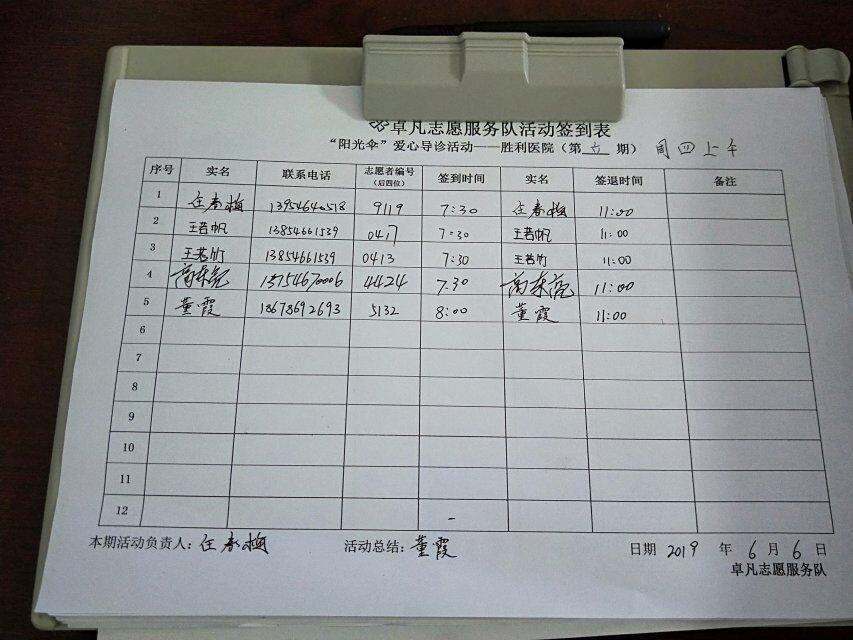 卓凡志愿服务队活动签到表
“阳光伞”爱心导诊活动——胜利医院（第 期） 周四上午
序号 实名 联系电话 志愿者编号（后四位） 签到时间 实名 签退时间 备注
1 任春梅 13954640518 9119 7:30 任春梅 11:00
2 王若帆 13854661539 0417 7:30 王若帆 11:00
3 王若竹 13854661539 0413 7:30 王若竹 11:00
4 高东亮 13754670006 4424 7.30 高东亮 11:00
5 董霞 18678692693 5132 8:00 董霞 11:00
6
7
8
9
10
11
12
本期活动负责人：任春梅 活动总结：董霞 日期 2019 年 6 月 6 日
卓凡志愿服务队